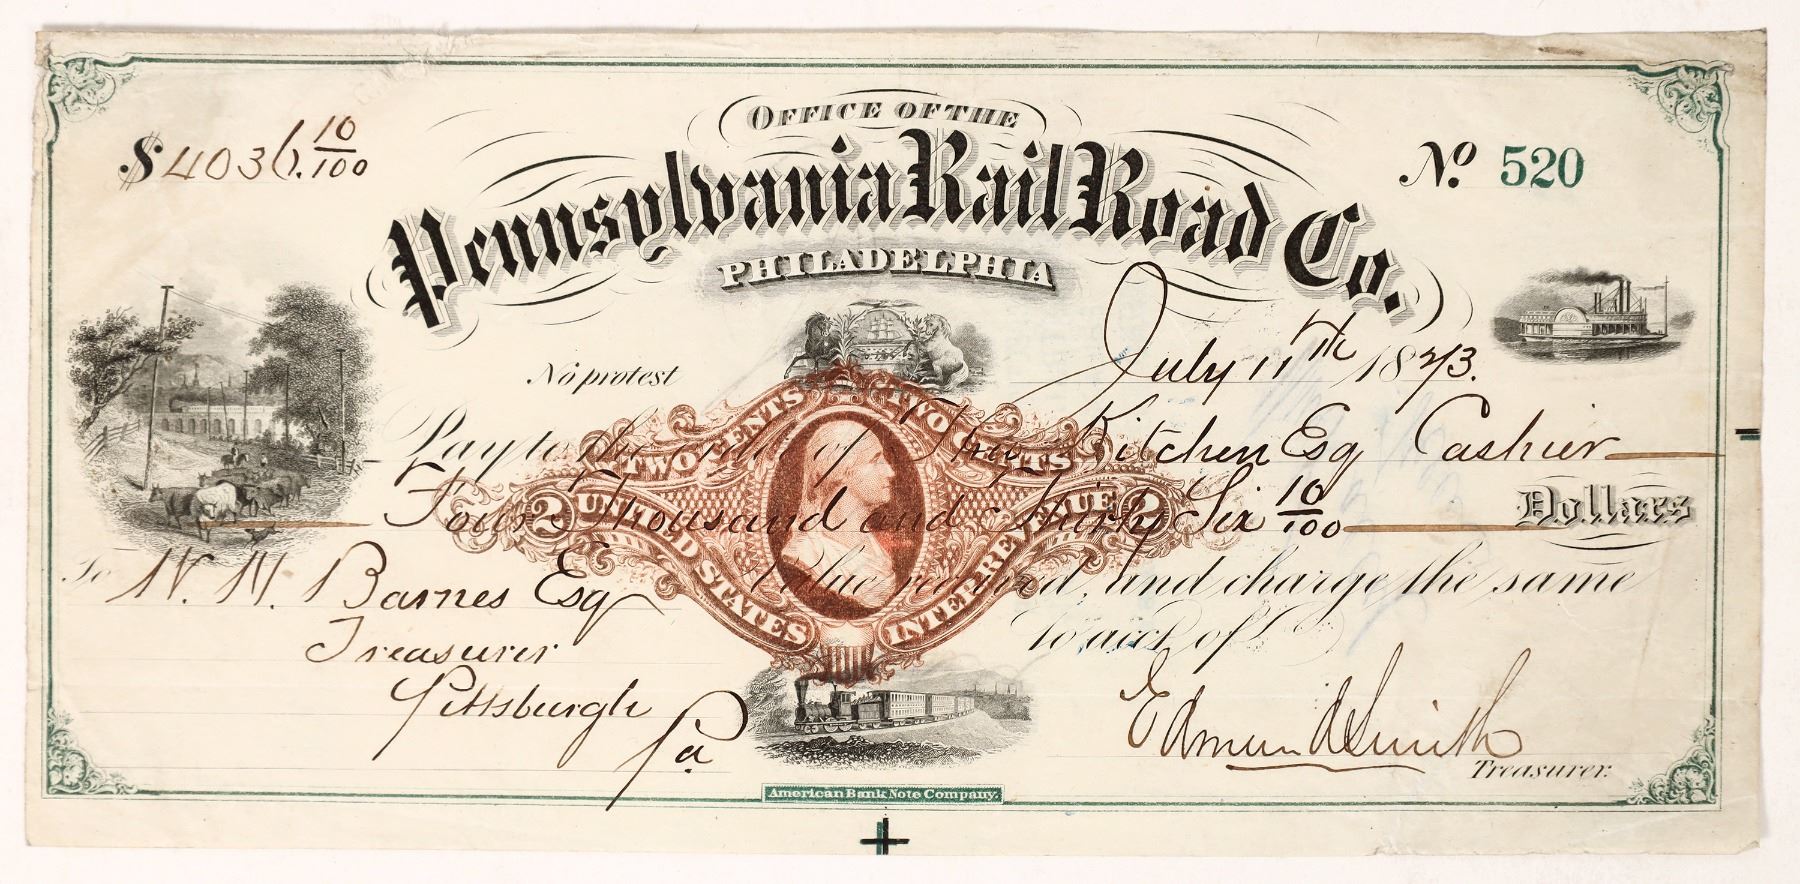 Office of the
Pennsylvania Rail Road Co.
Philadelphia
$4036. 10/100
No. 520
No protest
July 11th 1873.
Pay to the order of Thos Kitchen Esq Cashier
Four Thousand and Thirty Six 10/100 Dollars
Value received, and charge the same
to acct of
To W. H. Barnes Esq
Treasurer
Pittsburgh
Pa
Edmund Smith
Treasurer.
TWO CENTS TWO CENTS
2 UNITED STATES INTER. REVENUE 2
American Bank Note Company.